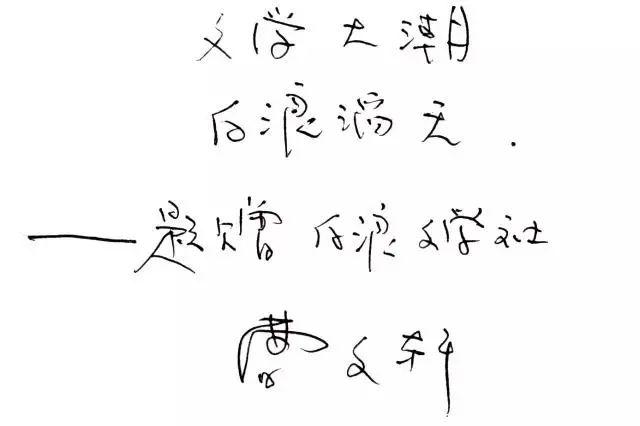 文学大潮
白浪滔天.
——题赠白浪文学社
曹文轩